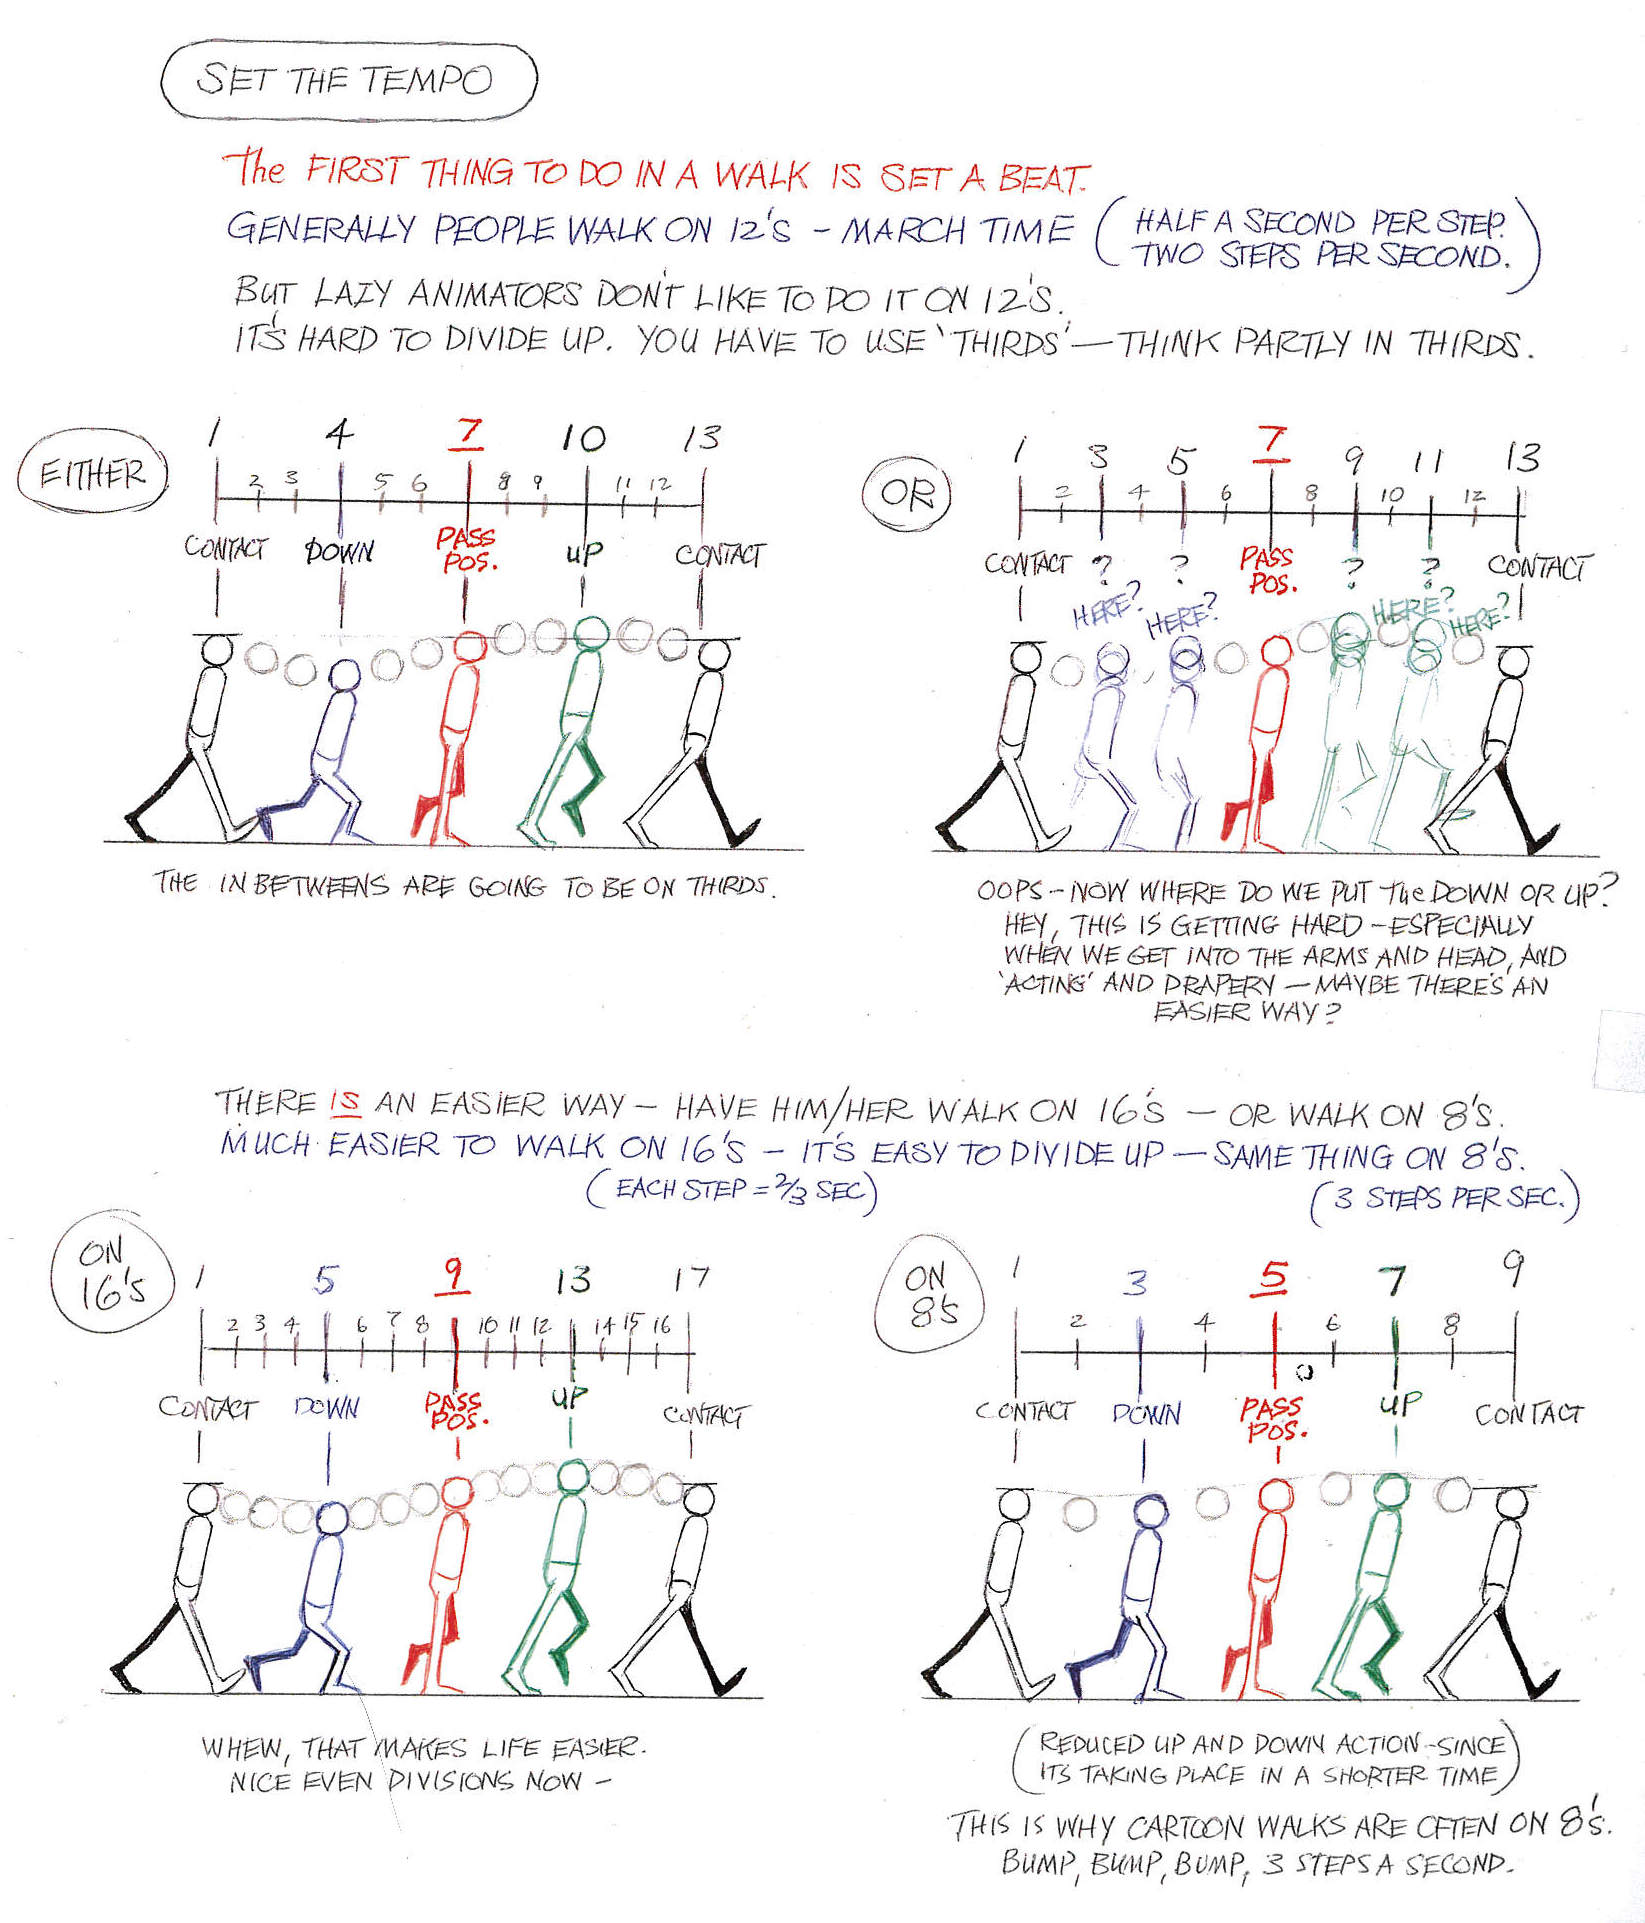 SET THE TEMPO
The FIRST THING TO DO IN A WALK IS SET A BEAT.
GENERALLY PEOPLE WALK ON 12'S - MARCH TIME (HALF A SECOND PER STEP.
TWO STEPS PER SECOND.)
BUT LAZY ANIMATORS DON'T LIKE TO DO IT ON 12'S.
IT'S HARD TO DIVIDE UP. YOU HAVE TO USE 'THIRDS' — THINK PARTLY IN THIRDS.
EITHER
1 4 7 10 13
2 3 5 6 8 9 11 12
CONTACT DOWN PASS POS. UP CONTACT
THE INBETWEENS ARE GOING TO BE ON THIRDS.
OR
1 3 5 7 9 11 13
2 4 6 8 10 12
CONTACT ? ? PASS POS. ? ? CONTACT
HERE? HERE? HERE? HERE?
OOPS - NOW WHERE DO WE PUT The DOWN OR UP?
HEY, THIS IS GETTING HARD - ESPECIALLY
WHEN WE GET INTO THE ARMS AND HEAD, AND
'ACTING' AND DRAPERY — MAYBE THERE'S AN
EASIER WAY?
THERE IS AN EASIER WAY — HAVE HIM/HER WALK ON 16'S — OR WALK ON 8'S.
MUCH EASIER TO WALK ON 16'S — IT'S EASY TO DIVIDE UP — SAME THING ON 8'S.
(EACH STEP = 2/3 SEC) (3 STEPS PER SEC.)
ON
16'S
1 5 9 13 17
2 3 4 6 7 8 10 11 12 14 15 16
CONTACT DOWN PASS POS. UP CONTACT
WHEW, THAT MAKES LIFE EASIER.
NICE EVEN DIVISIONS NOW —
ON
8'S
1 3 5 7 9
2 4 6 8
CONTACT DOWN PASS POS. UP CONTACT
(REDUCED UP AND DOWN ACTION - SINCE
ITS TAKING PLACE IN A SHORTER TIME)
THIS IS WHY CARTOON WALKS ARE OFTEN ON 8'S.
BUMP, BUMP, BUMP, 3 STEPS A SECOND.